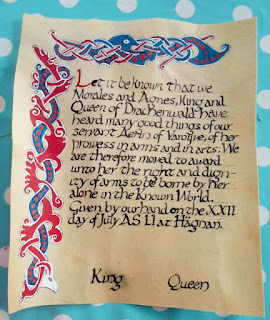 Let it be known that we
Morales and Agnes, King and
Queen of Drachenwald have
heard many good things of our
servant Aerlin of Varoitye, of her
prowess in arms and in arts. We
are therefore moved to award
unto her the right and dign-
ity of arms to be borne by her
alone in the Known World.
Given by our hand on the XXII
day of July AS LI at Hägnan.
King Queen